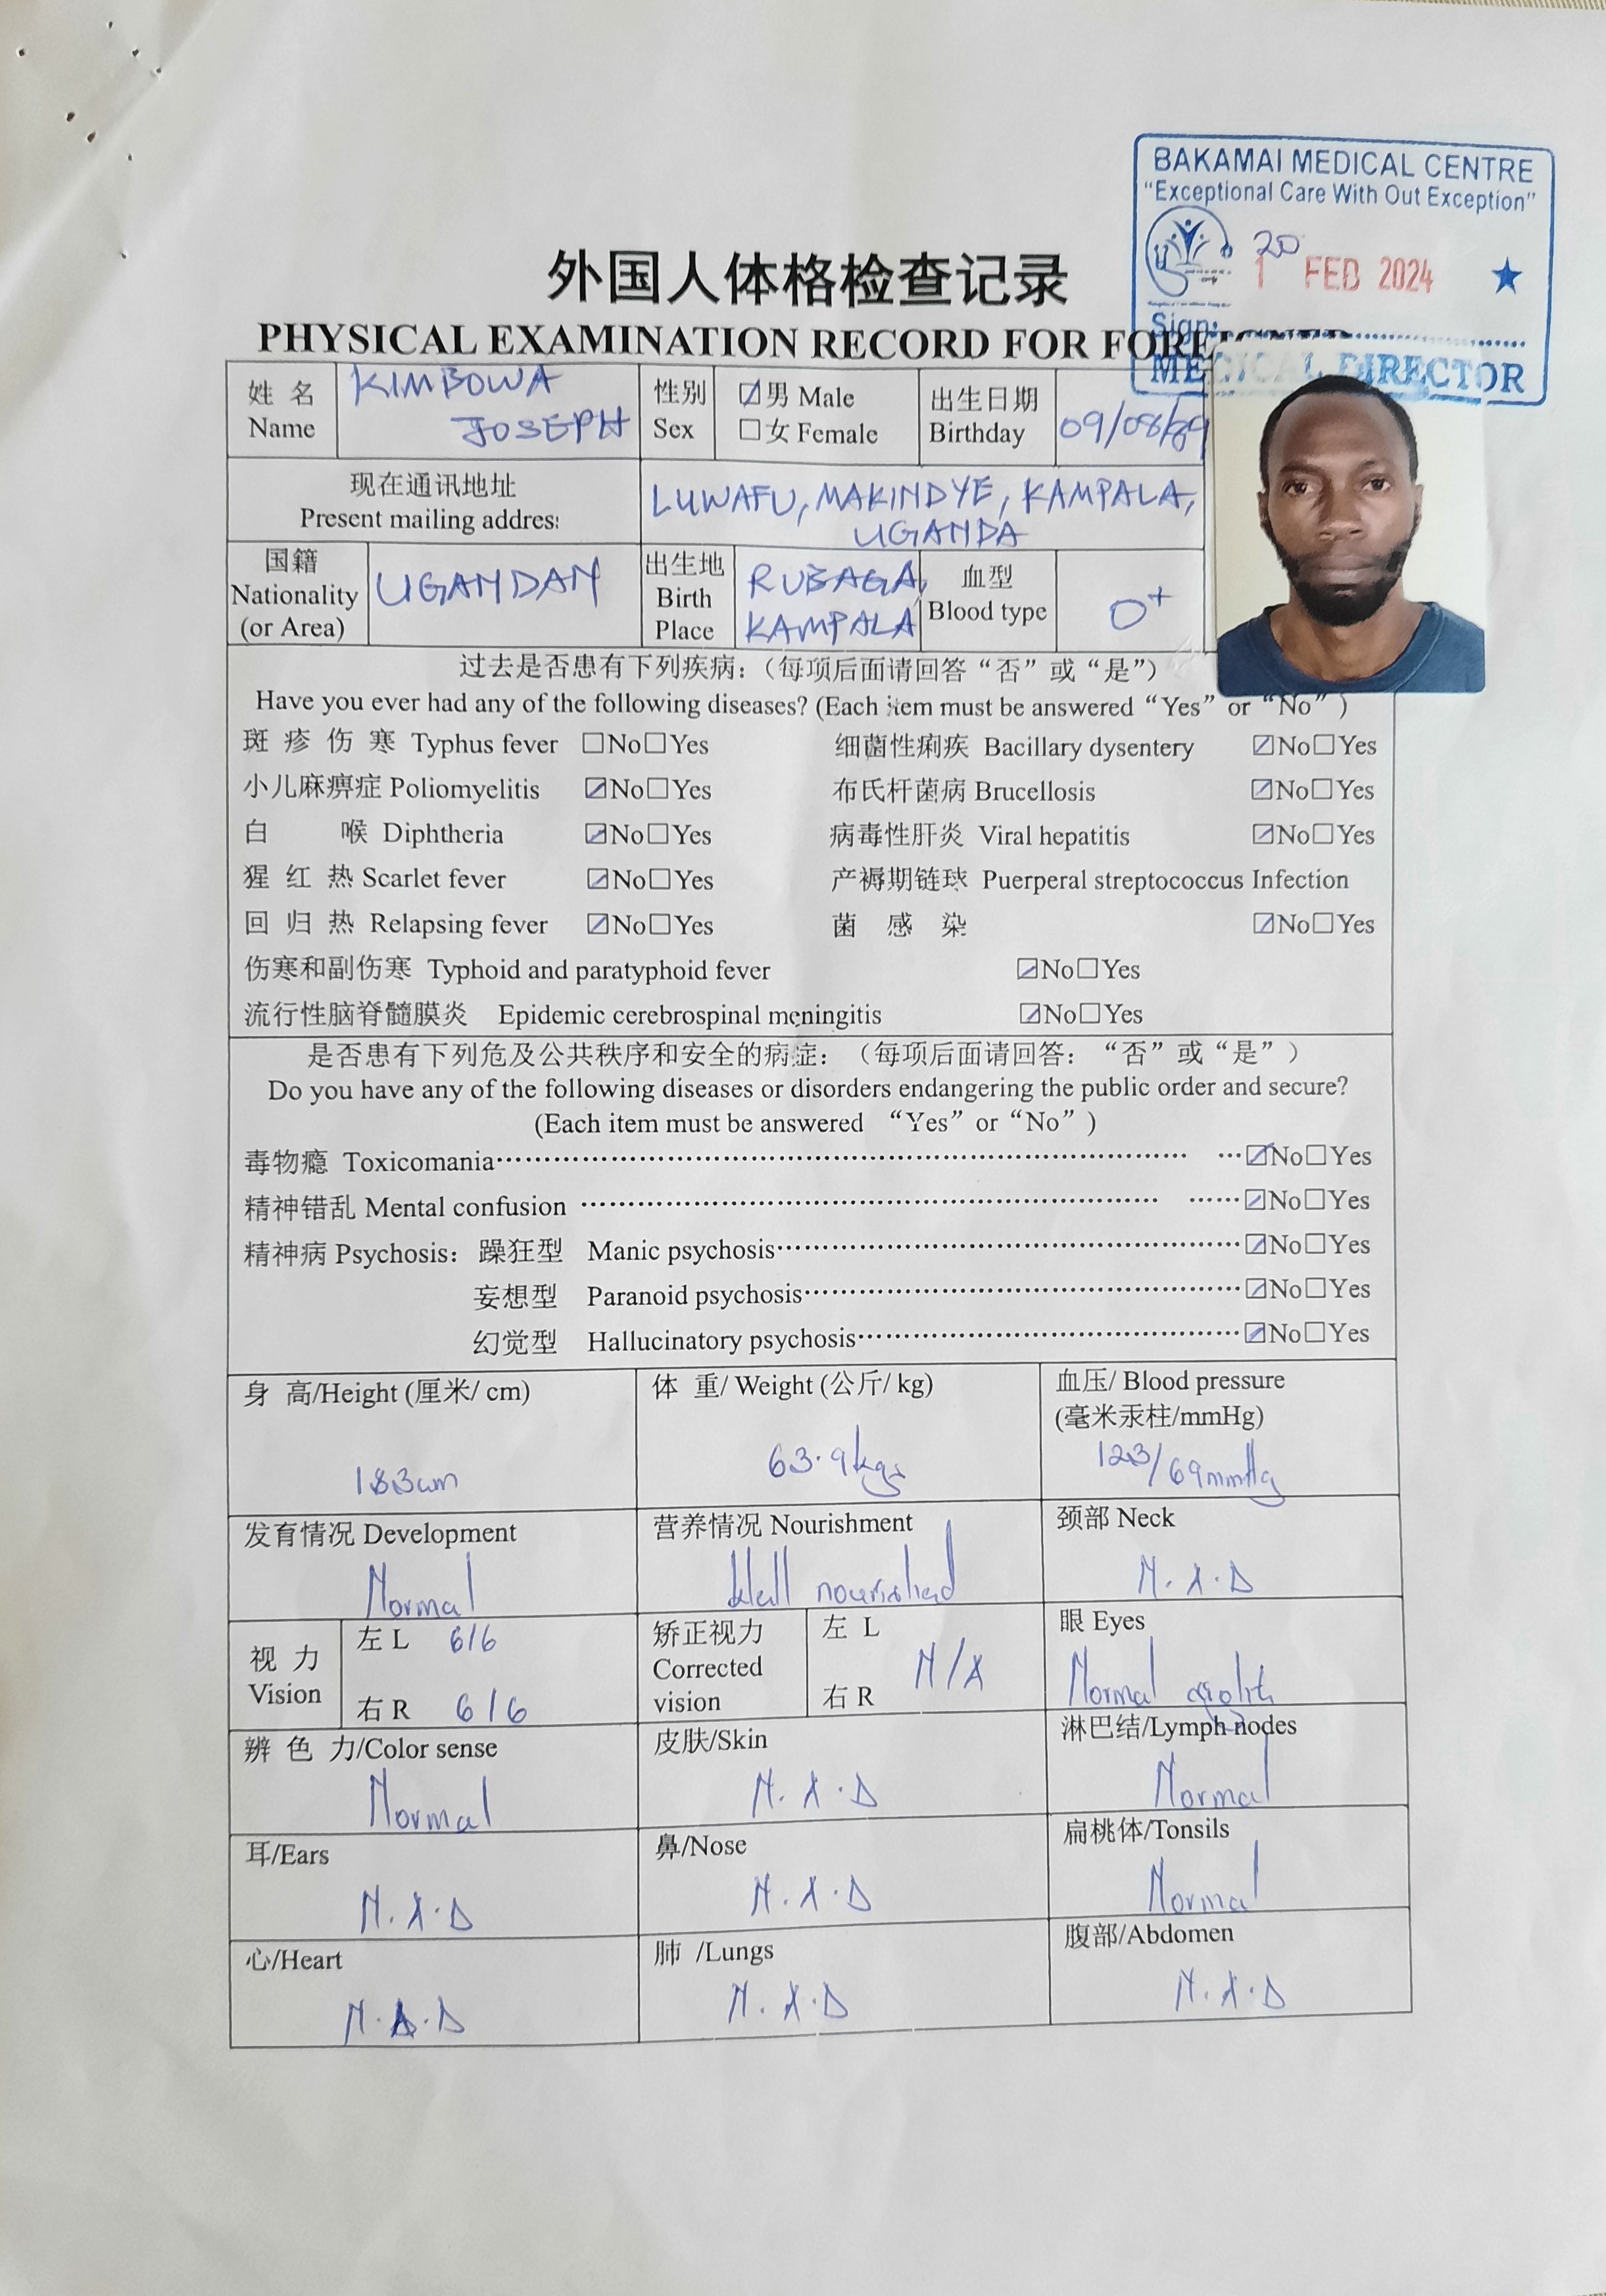 BAKAMAI MEDICAL CENTRE
"Exceptional Care With Out Exception"
20
1 FEB 2024
Sign:
MEDICAL DIRECTOR
外国人体格检查记录
PHYSICAL EXAMINATION RECORD FOR FOREIGNER
姓 名 Name KIMBOWA JOSEPH
性别 Sex ☑男 Male □女 Female
出生日期 Birthday 09/08/89
现在通讯地址
Present mailing address
LUWAFU, MAKINDYE, KAMPALA,
UGANDA
国籍 Nationality (or Area) UGANDAN
出生地 Birth Place RUBAGA, KAMPALA
血型 Blood type O+
过去是否患有下列疾病：（每项后面请回答“否”或“是”）
Have you ever had any of the following diseases? (Each item must be answered “Yes” or “No” )
斑 疹 伤 寒 Typhus fever □No□Yes 细菌性痢疾 Bacillary dysentery ☑No□Yes
小儿麻痹症 Poliomyelitis ☑No□Yes 布氏杆菌病 Brucellosis ☑No□Yes
白 喉 Diphtheria ☑No□Yes 病毒性肝炎 Viral hepatitis ☑No□Yes
猩 红 热 Scarlet fever ☑No□Yes 产褥期链球 Puerperal streptococcus Infection
回 归 热 Relapsing fever ☑No□Yes 菌 感 染 ☑No□Yes
伤寒和副伤寒 Typhoid and paratyphoid fever ☑No□Yes
流行性脑脊髓膜炎 Epidemic cerebrospinal meningitis ☑No□Yes
是否患有下列危及公共秩序和安全的病症：（每项后面请回答：“否”或“是”）
Do you have any of the following diseases or disorders endangering the public order and secure?
(Each item must be answered “Yes” or “No” )
毒物瘾 Toxicomania ☑No□Yes
精神错乱 Mental confusion ☑No□Yes
精神病 Psychosis：躁狂型 Manic psychosis ☑No□Yes
妄想型 Paranoid psychosis ☑No□Yes
幻觉型 Hallucinatory psychosis ☑No□Yes
身 高/Height (厘米/ cm) 183cm
体 重/ Weight (公斤/ kg) 63.9kgs
血压/ Blood pressure (毫米汞柱/mmHg) 123/69mmHg
发育情况 Development Normal
营养情况 Nourishment Well nourished
颈部 Neck N.A.D
视 力 Vision 左 L 6/6 右 R 6/6
矫正视力 Corrected vision 左 L 右 R N/A
眼 Eyes Normal
辨 色 力/Color sense Normal
皮肤/Skin N.A.D
淋巴结/Lymph nodes Normal
耳/Ears N.A.D
鼻/Nose N.A.D
扁桃体/Tonsils Normal
心/Heart N.A.D
肺 /Lungs N.A.D
腹部/Abdomen N.A.D